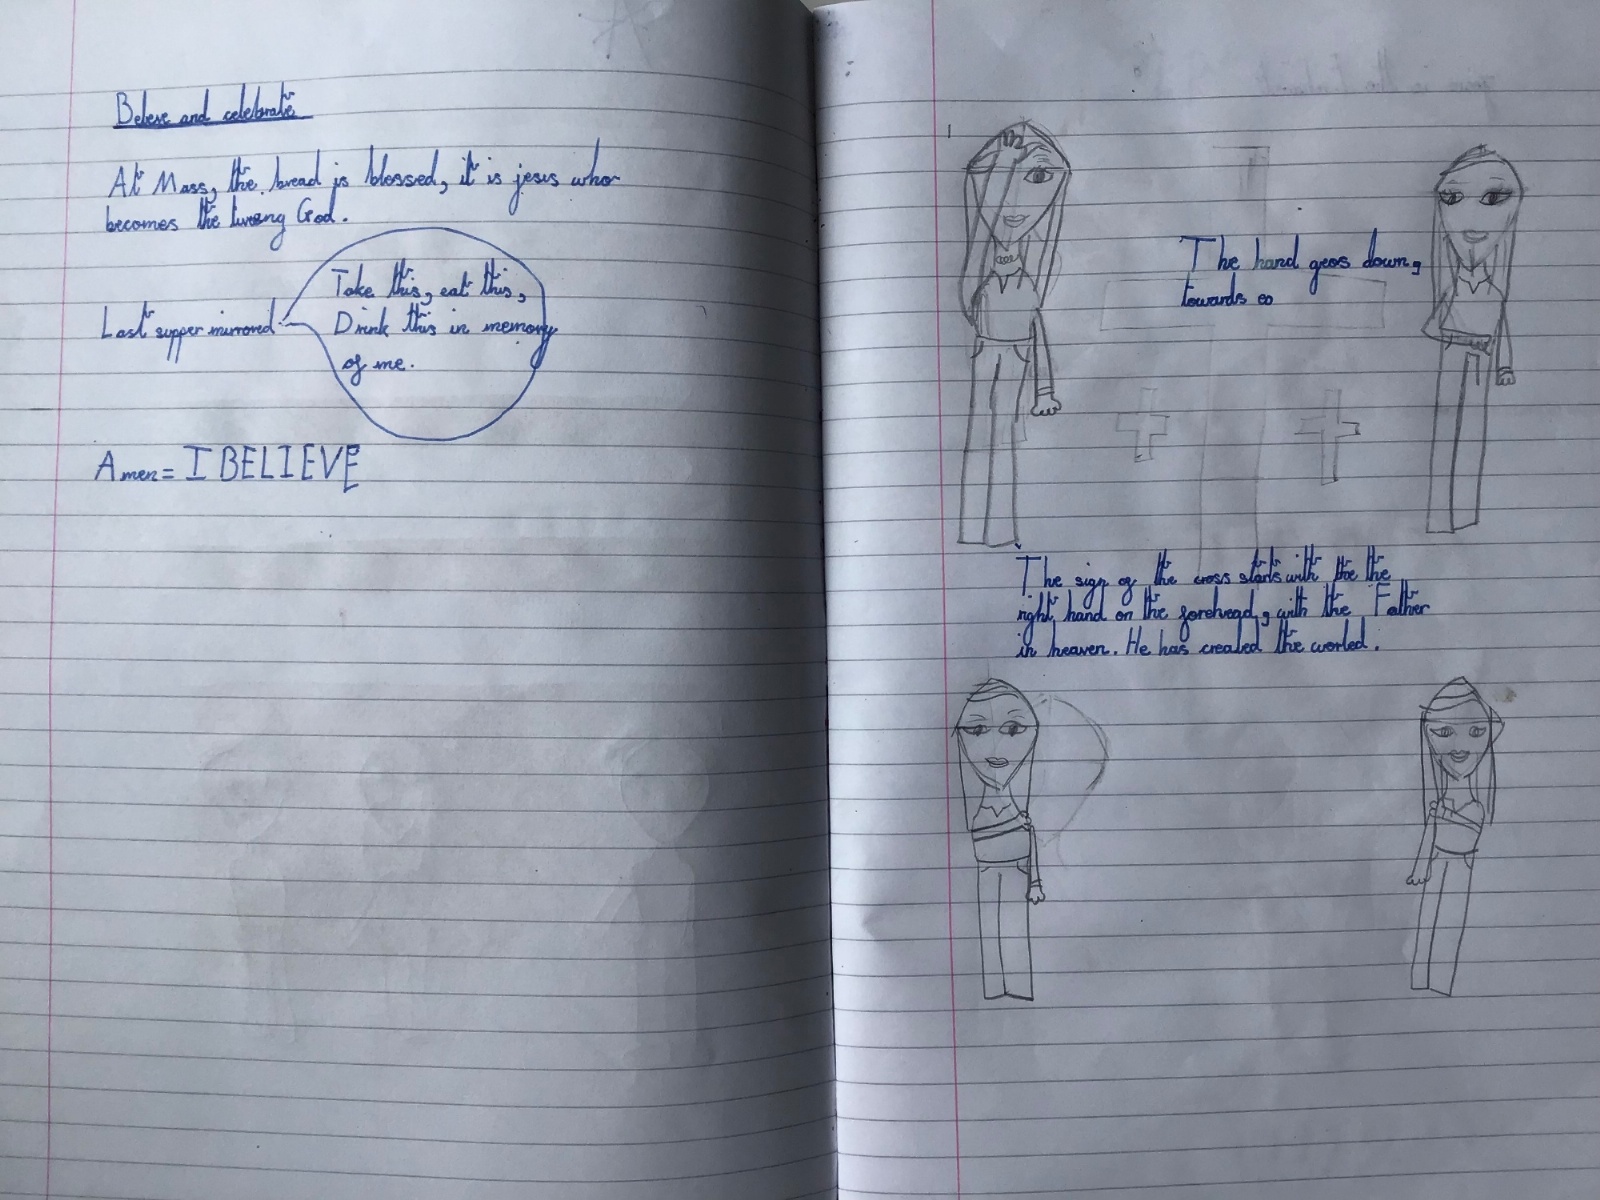 Beleve and celebrate
At Mass, the bread is blessed, it is jesus who
becomes the liveing God.
Last supper mirrored
Take this, eat this,
Drink this in memory
of me.
Amen = I BELIEVE
1
The hand goes down,
towards eo
The sign of the cross starts with the the
right hand on the forehead, with the Father
in heaven. He has created the worled.